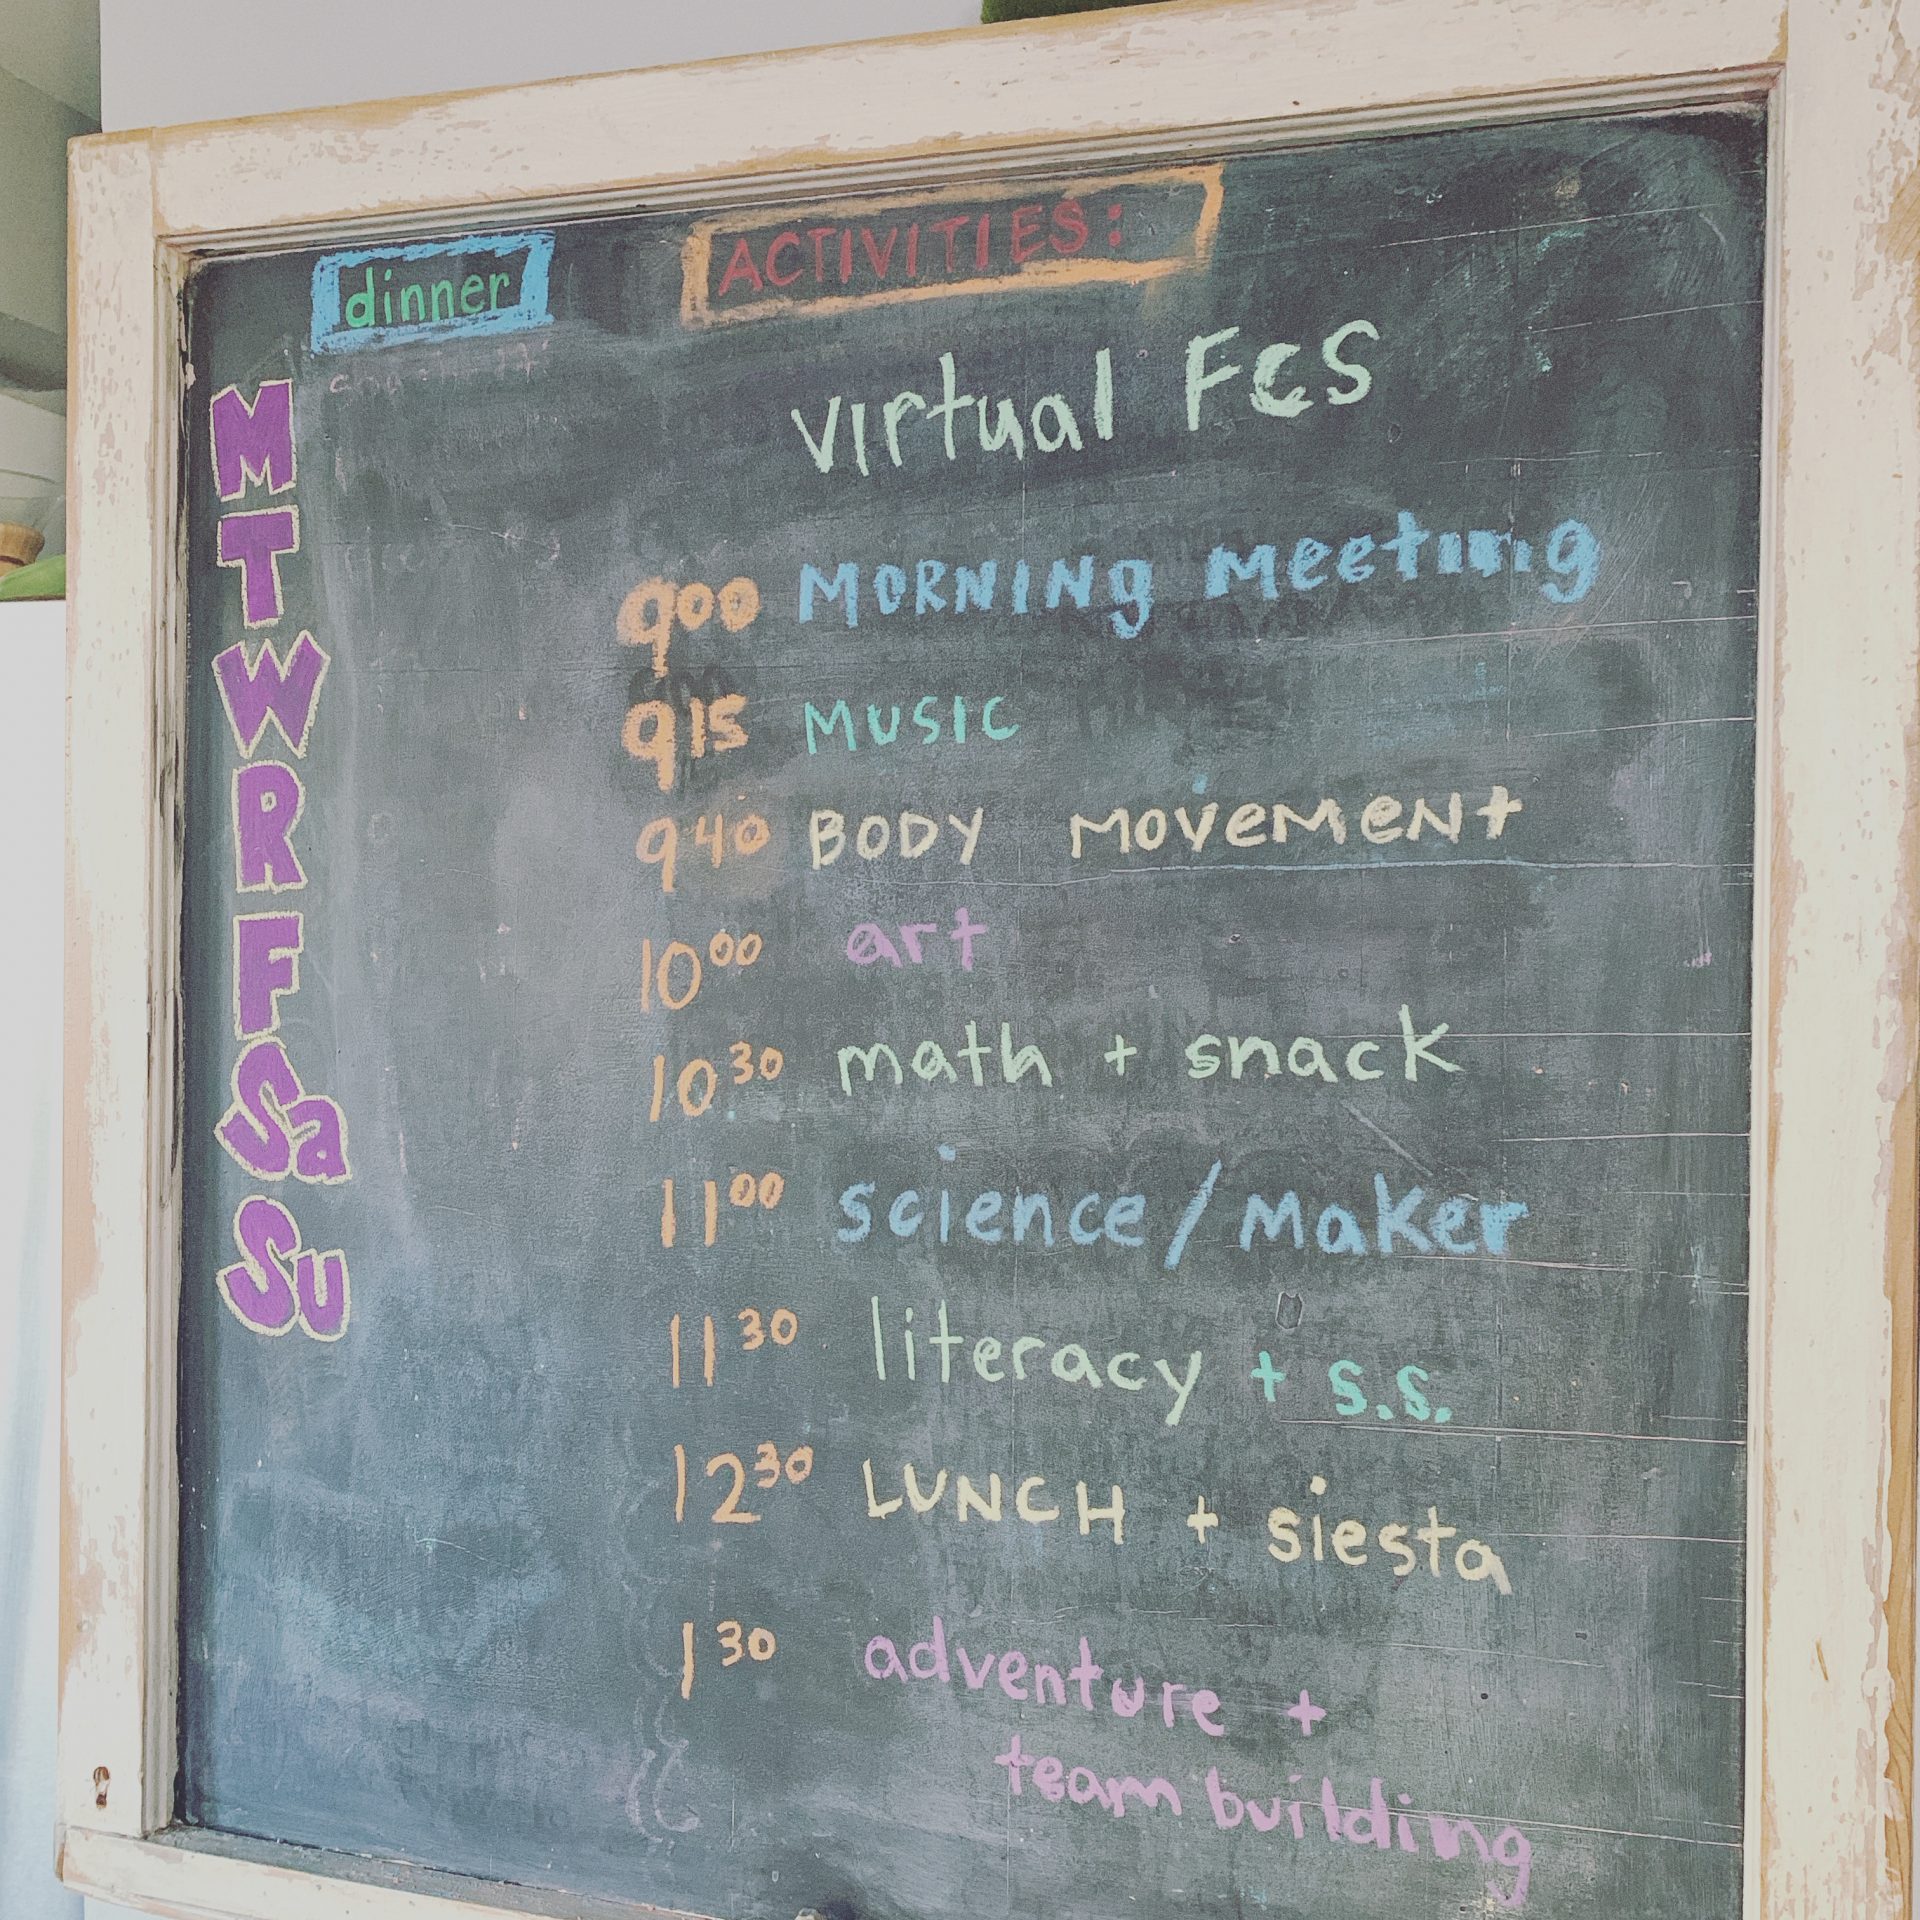 dinner
ACTIVITIES:
Virtual FCS
M
T
W
R
F
Sa
Su
900 MORNINg Meeting
915 MUSIC
940 BODY MOVeMeNt
1000 art
1030 math + snack
1100 science/Maker
1130 literacy + s.s.
1230 LUNCH + siesta
130 adventure +
team building